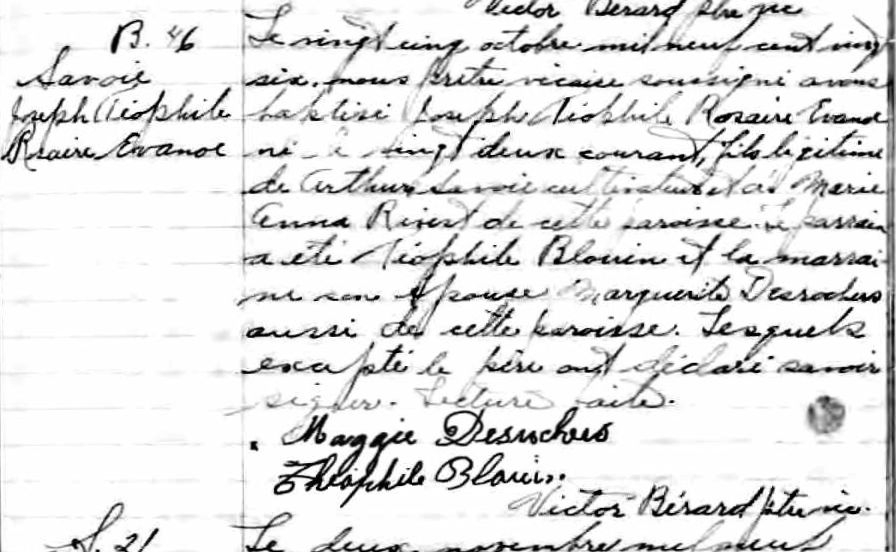 Victor Bérard ptre vic
B. 46
Savoie
Joseph Téophile
Rsaire Evanoe
Le vingt cinq octobre mil neuf cent vingt
six, nous prêtre vicaire soussigné avons
baptisé Joseph Téophile Rosaire Evanoe
né le vingt deux courant, fils légitime
de Arthur Savoie cultivateur et de Marie
Anna Rivest de cette paroisse. Le parrain
a été Téophile Blouin et la marrai
ne son épouse Marguerite Desrochers
aussi de cette paroisse. Lesquels
excepté le père ont déclaré savoir
signer. Lecture faite.
Maggie Desrochers
Théophile Blouin.
Victor Bérard ptre vic.
S. 21
Le deux novembre mil neuf